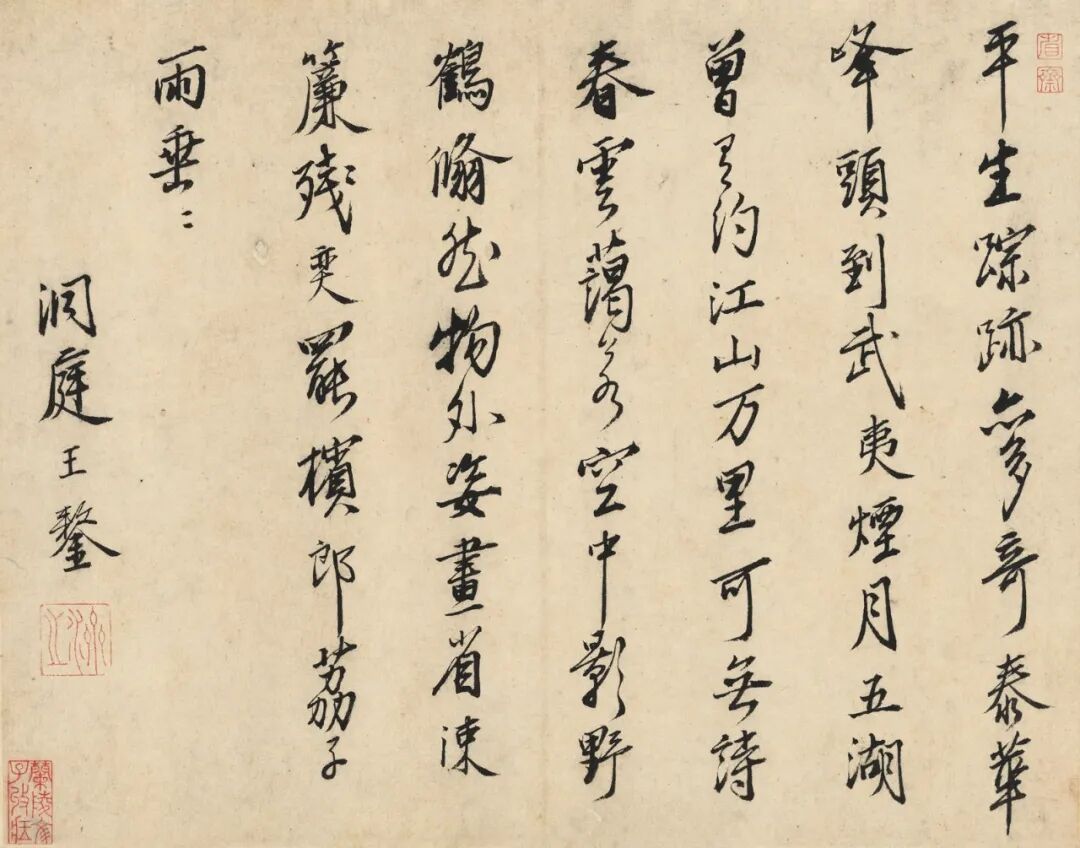 省齋
平生踪跡亦多奇泰華
峰頭到武夷煙月五湖
曾有約江山万里可無詩
春雲藹若空中影野
鶴翛然物外姿畫省疎
簾残奕罷檳郎荔子
雨垂〻
洞庭王鏊
濟之